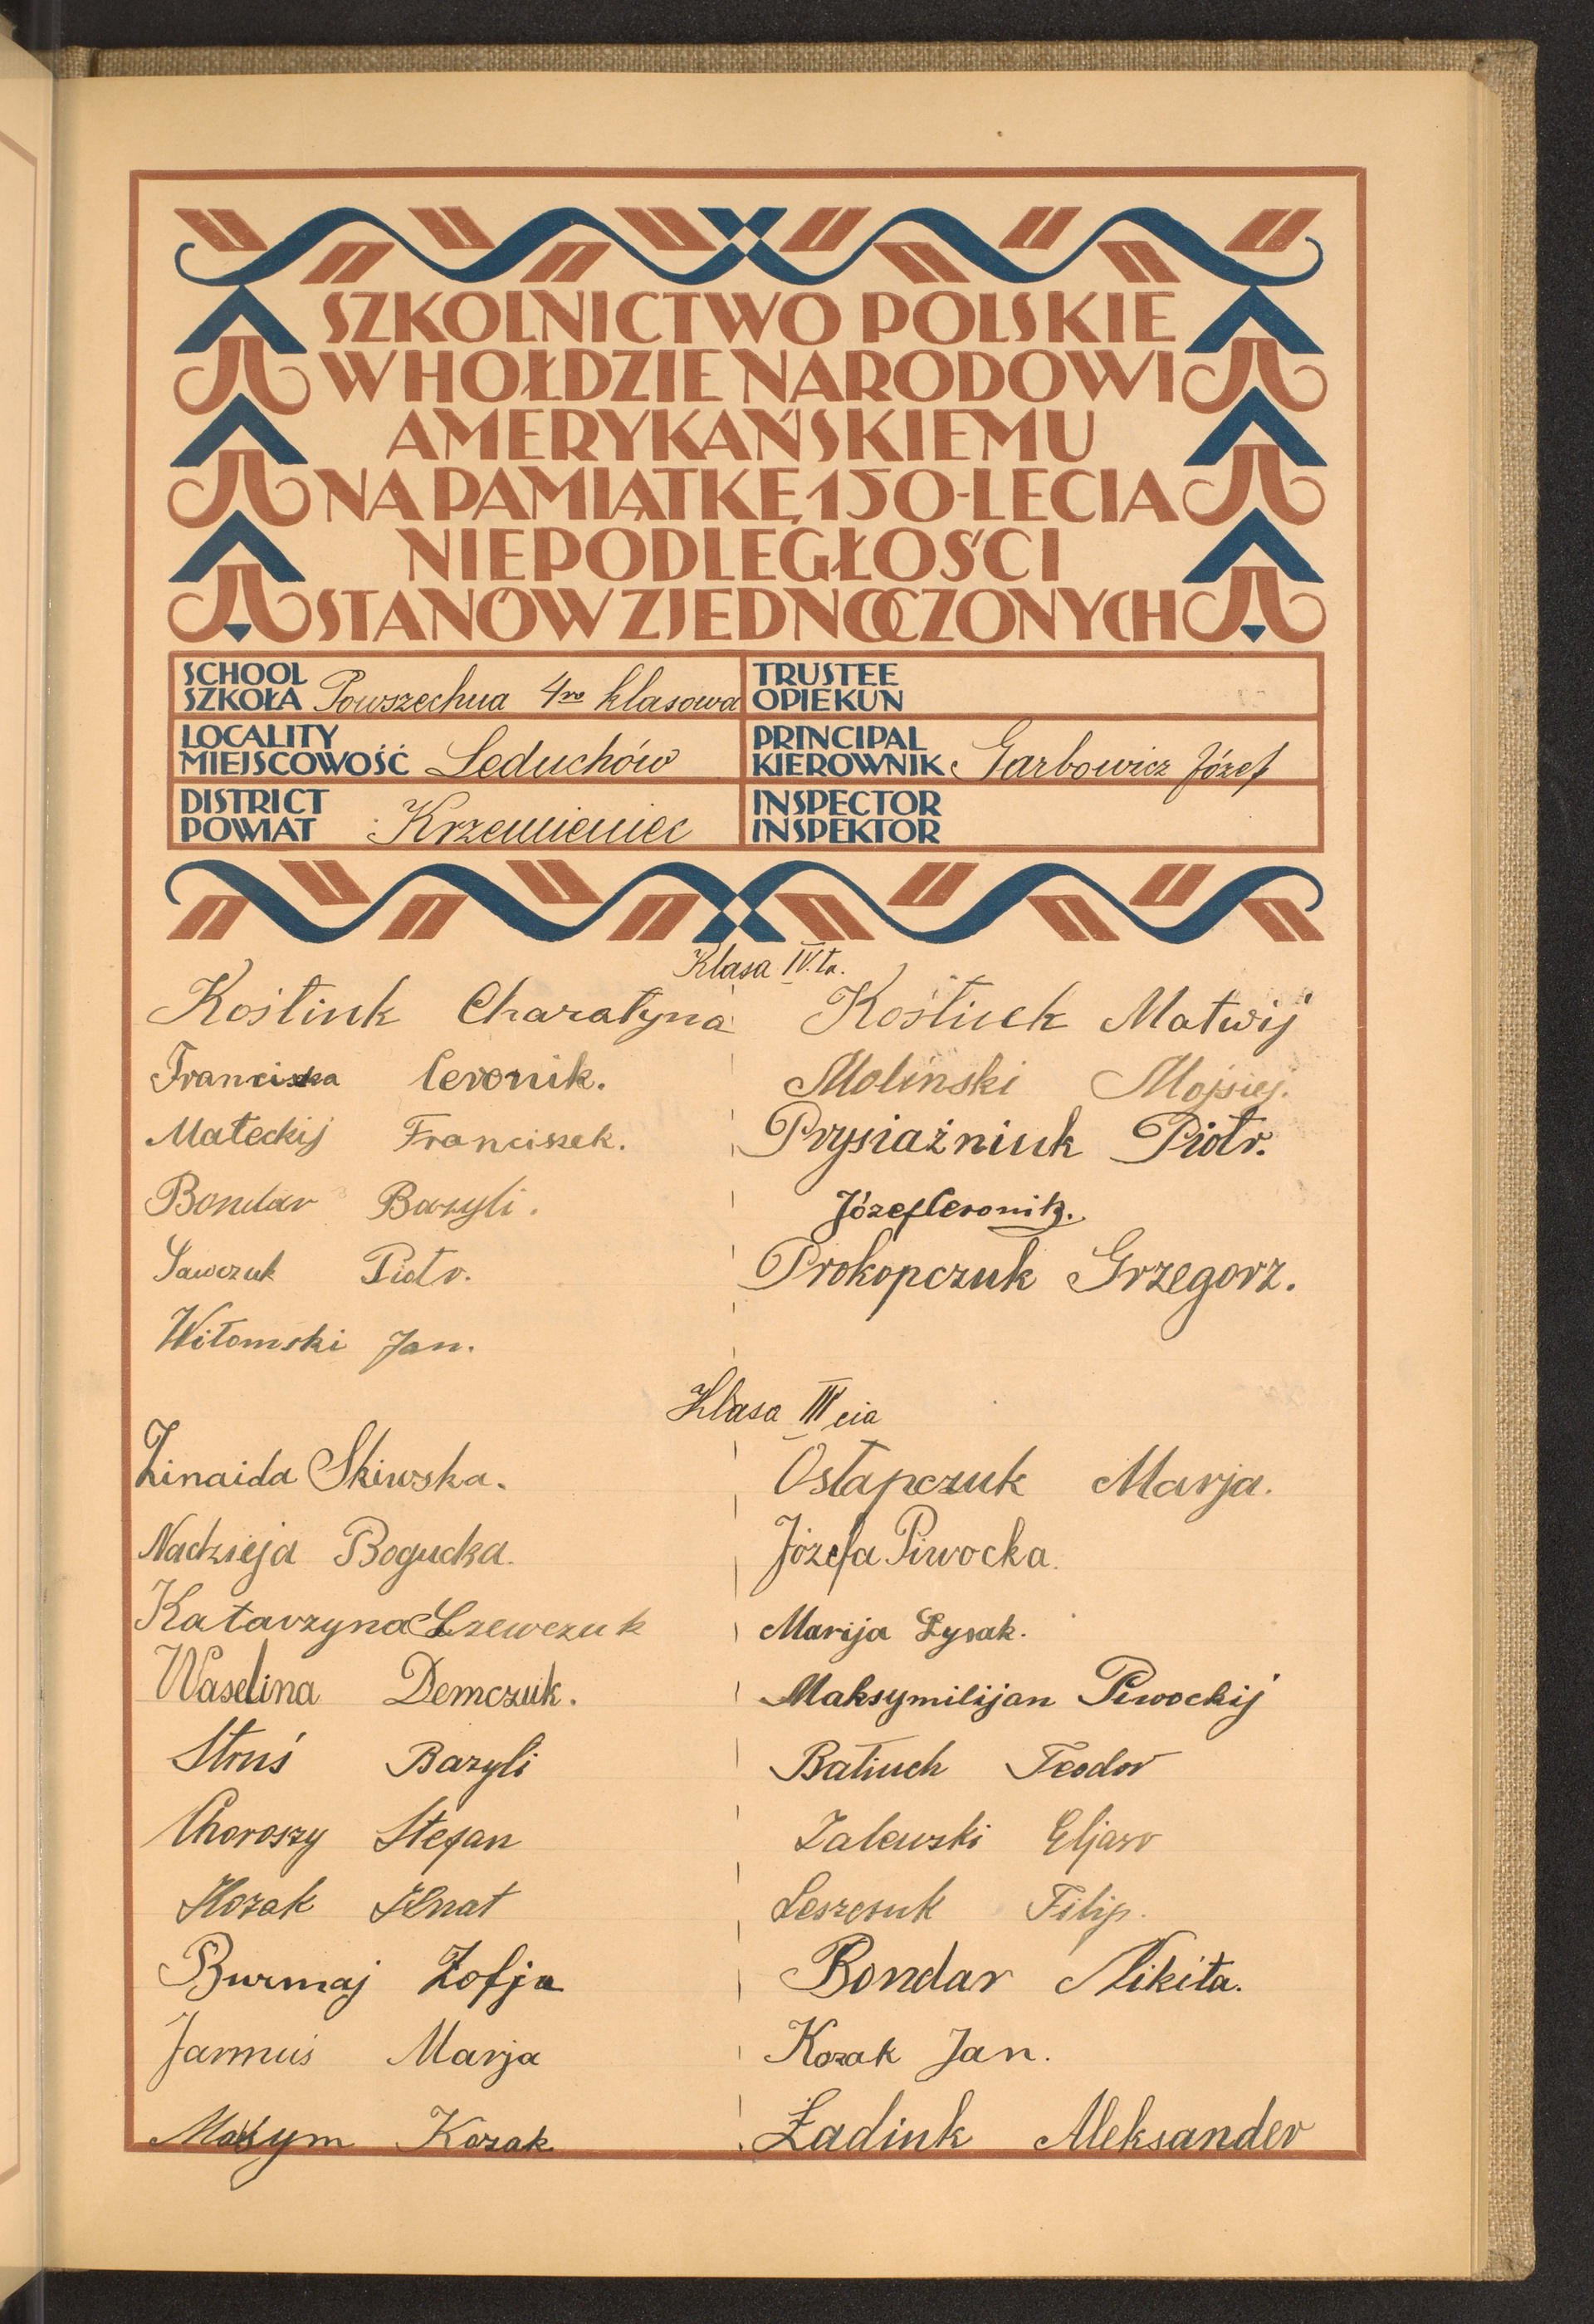 SZKOLNICTWO POLSKIE
W HOŁDZIE NARODOWI
AMERYKAŃSKIEMU
NA PAMIĄTKĘ 150-LECIA
NIEPODLEGŁOŚCI
STANÓW ZJEDNOCZONYCH
SCHOOL
SZKOŁA Powszechna 4ro klasowa
TRUSTEE
OPIEKUN
LOCALITY
MIEJSCOWOŚĆ Leduchów
PRINCIPAL
KIEROWNIK Garbowicz Józef
DISTRICT
POWIAT Krzemieniec
INSPECTOR
INSPEKTOR
Klasa IV.ta.
Kostiuk Charatyna
Franciszka Ceronik.
Małeckij Franciszek.
Bondar Bazyli.
Sawczuk Piotr.
Witomski Jan.
Kostiuck Matwij
Moliński Mojsiej.
Prysiażniuk Piotr.
Józef Ceronik.
Prokopczuk Grzegorz.
Klasa III cia
Zinaida Skiwska.
Nadzieja Bogucka.
Katarzyna Szewczuk
Waselina Demczuk.
Struś Bazyli
Choroszy Stefan
Kozak Ihnat
Burmaj Zofja
Jarmuś Marja
Maksym Kozak
Ostapczuk Marja.
Józefa Piwocka.
Marija Łysak.
Maksymilijan Piwockij
Batiuch Teodor
Zalewski Eljasz
Leszczuk Filip.
Bondar Nikita.
Kozak Jan.
Ładiuk Aleksander